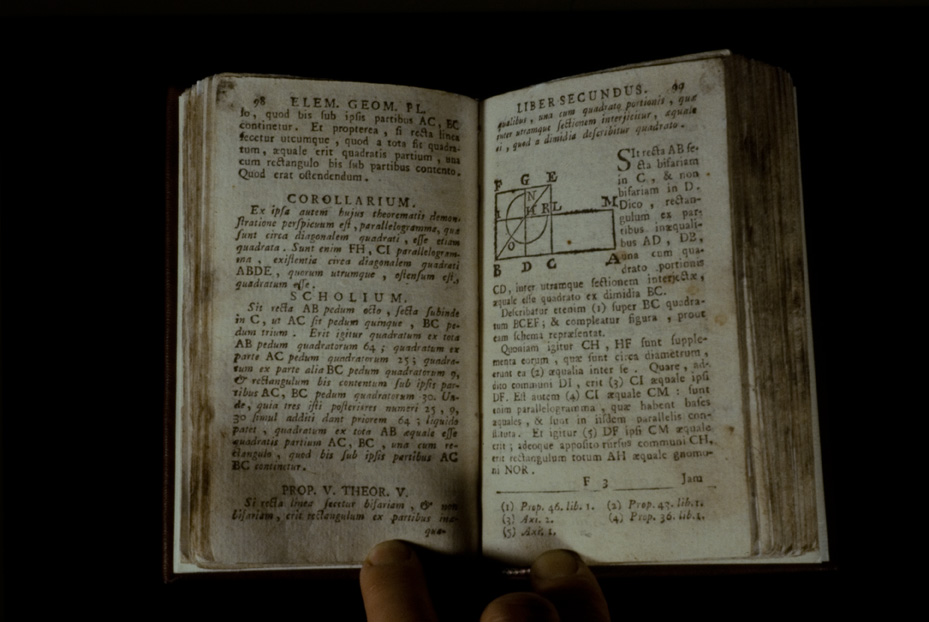 98 ELEM. GEOM. PL.
lo, quod bis sub ipsis partibus AC, BC
continetur. Et propterea, si recta linea
secetur utcumque, quod a tota fit quadra-
tum, æquale erit quadratis partium, una
cum rectangulo bis sub partibus contento.
Quod erat ostendendum.
COROLLARIUM.
Ex ipsa autem hujus theorematis demon-
stratione perspicuum est, parallelogramma, quæ
sunt circa diagonalem quadrati, esse etiam
quadrata. Sunt enim FH, CI parallelogram-
ma, existentia circa diagonalem quadrati
ABDE, quorum utrumque, ostensum est,
quadratum esse.
SCHOLIUM.
Sit recta AB pedum octo, secta subinde
in C, ut AC sit pedum quinque, BC pe-
dum trium. Erit igitur quadratum ex tota
AB pedum quadratorum 64; quadratum ex
parte AC pedum quadratorum 25; quadra-
tum ex parte alia BC pedum quadratorum 9,
& rectangulum bis contentum sub ipsis par-
tibus AC, BC pedum quadratorum 30. Un-
de, quia tres isti posteriores numeri 25, 9,
30 simul additi dant priorem 64; liquido
patet, quadratum ex tota AB æquale esse
quadratis partium AC, BC, una cum re-
ctangulo, quod bis sub ipsis partibus AC
BC continetur.
PROP. V. THEOR. V.
Si recta linea secetur bifariam, & non
bifariam, erit rectangulum ex partibus inæ-
qua-
LIBER SECUNDUS. 69
qualibus, una cum quadrato portionis, quæ
inter utramque sectionem interjicitur, æquale
ei, quod a dimidia describitur quadrato.
SIt recta AB se-
cta bifariam
in C, & non
bifariam in D.
Dico, rectan-
gulum ex par-
tibus inæquali-
bus AD, DB,
una cum qua-
drato portionis
F G E
N
I H R L M
O
B D C A
CD, inter utramque sectionem interjectæ,
æquale esse quadrato ex dimidia BC.
Describatur etenim (1) super BC quadra-
tum BCEF; & compleatur figura, prout
eam schema repræsentat.
Quoniam igitur CH, HF sunt supple-
menta eorum, quæ sunt circa diametrum,
erunt ea (2) æqualia inter se. Quare, ad-
dito communi DI, erit (3) CI æquale ipsi
DF. Est autem (4) CI æquale CM: sunt
enim parallelogramma, quæ habent bases
æquales, & sunt in iisdem parallelis con-
stituta. Et igitur (5) DF ipsi CM æquale
erit; adeoque apposito rursus communi CH,
erit rectangulum totum AH æquale gnomo-
ni NOR.
F 3 Jam
(1) Prop. 46. lib. 1. (2) Prop. 43. lib. 1.
(3) Axi. 2. (4) Prop. 36. lib. 1.
(5) Axi. 1.